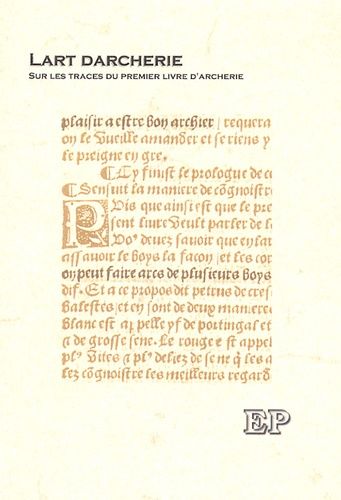 LART DARCHERIE
SUR LES TRACES DU PREMIER LIVRE D'ARCHERIE
plaisir a estre bon archier / requera
on le vueille amander et se riens y
le preigne en gre.
¶ Cy finist le prologue de c
¶ Sensuit la maniere de cõgnoistre
Puis que ainsi est que le pre
sent livre veult parler de l
Vo⁹ devez savoir que en lar
assavoir le boys la facon / et les cor
on peut faire arcs de plusieurs boys
dif. Et a ce propos dit petrus de cres
balestes / et en sont de deux maniere
blanc est appelle yf de portingal et
a de grosse sene. Le rouge est appel
pl⁹ vites a pl⁹ deliez de sene q̃ les a
lez cõgnoistre les meilleurs regard
EP